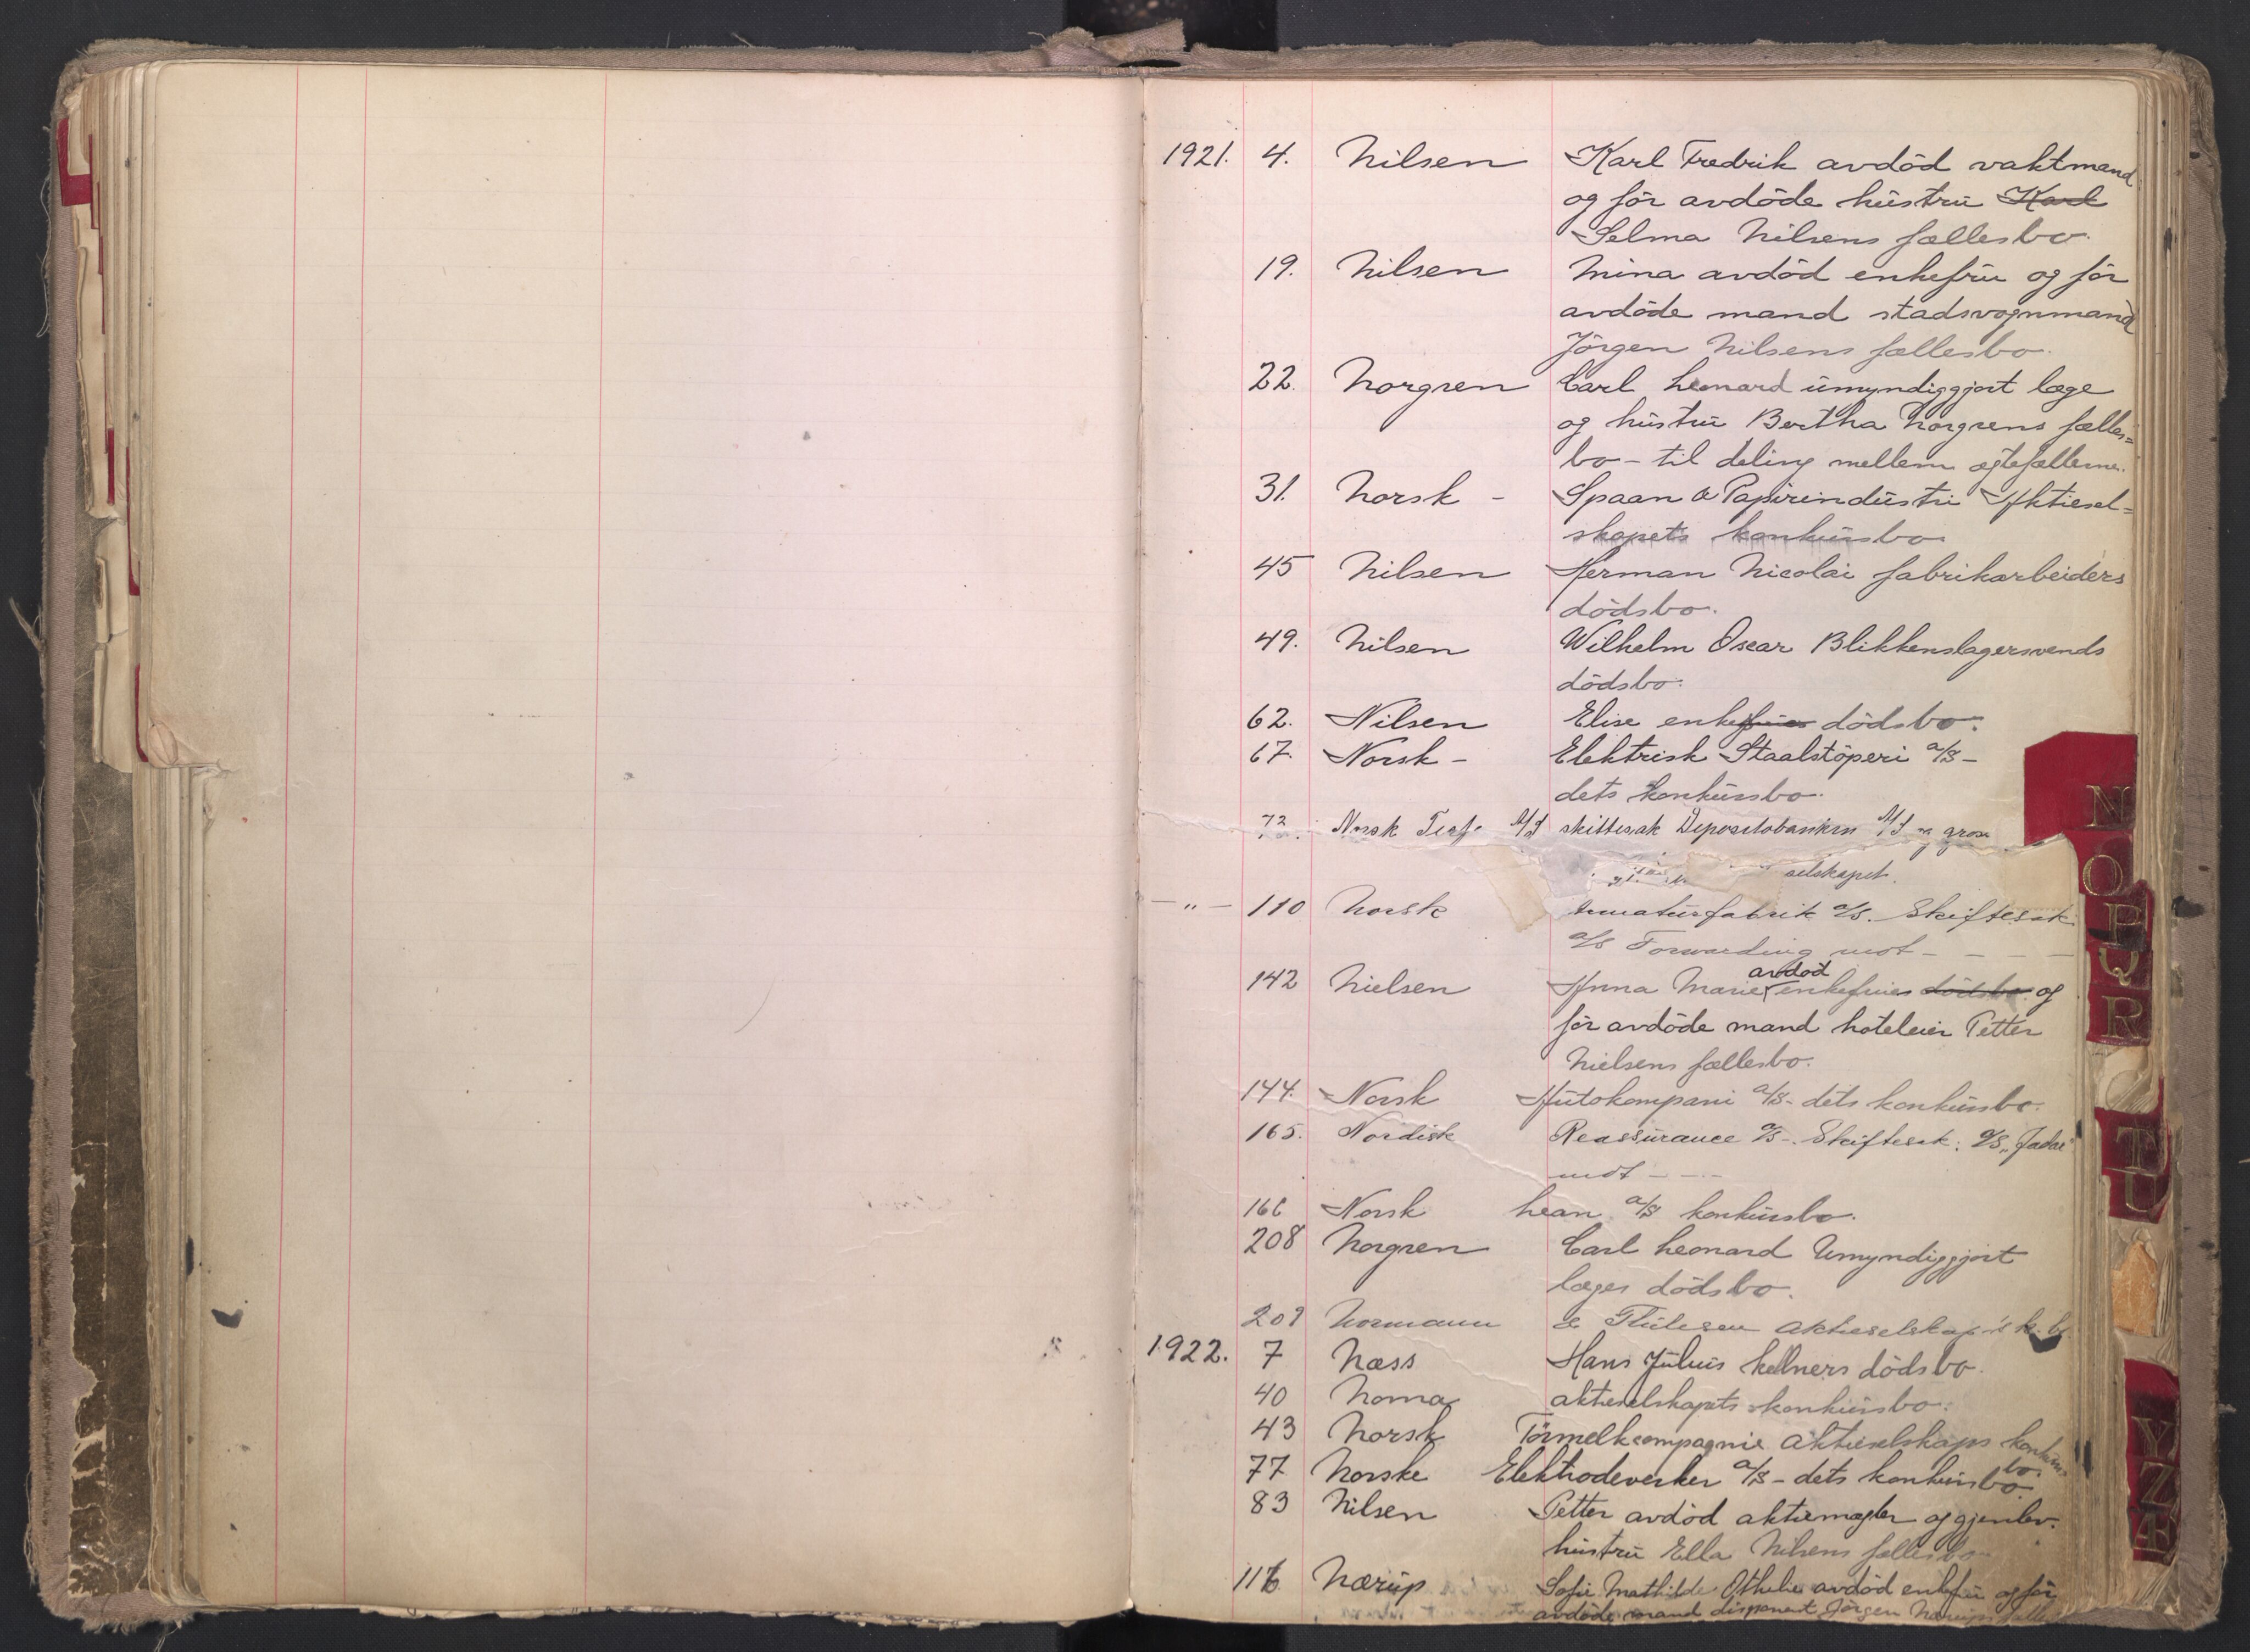 1921. 4. Nilsen Karl Fredrik avdöd vaktmand
og för avdöde hustru Karl
Selma Nilsens fællesbo.
19. Nilsen Mina avdöd enkefru og för
avdöde mand stadsvognmand
Jörgen Nilsens fællesbo.
22. Norgren Carl Leonard umyndiggjort læge
og hustru Bertha Norgrens fælles=
bo - til deling mellem egtefællerne.
31. Norsk - Spaan & Papirindustri Aktiesel=
skapets konkursbo
45 Nilsen Herman Nicolai fabrikarbeiders
dödsbo.
49. Nilsen Wilhelm Oscar Blikkenslagersvends
dödsbo.
62. Nilsen Elise enkefrues dödsbo.
67. Norsk - Elektrisk Staalstöperi a/s -
dets konkursbo.
72. Norsk A/S skiftesak Depositobanken A/S
selskapet.
- " - 110 Norsk Armaturfabrik a/s. Skiftesak
a/s Forwarding mot - - - -
avdöd
142 Nielsen Anna Marie enkefrues dödsbo. og
för avdöde mand hoteleier Petter
Nielsens fællesbo.
144. Norsk Autokompani a/s - dets konkursbo.
165. Nordisk Reassurance a/s -. Skiftesak: a/s "Jadar"
mot - - -
166 Norsk Lean a/s konkursbo.
208 Norgren Carl Leonard Umyndiggjort
læges dödsbo.
209 Normann & Thulesen Aktieselskap's k.b.
1922. 7 Næss Hans Julius kelners dödsbo.
40 Noma aktieselskapets konkursbo.
43 Norsk Törmelkcompagnie aktieselskaps konkurs
bo.
77 Norske Elektrodeverker a/s - dets konkursbo
83 Nilsen Petter avdöd aktiemægler og gjenlev.
hustru Ella Nilsens fællesbo
116 Nærup Sofie Mathilde Othelie avdöd enkefru og för
avdöde mand disponent Jörgen Nærups fælles
N
O
P
Q
R
T
U
Y
Z
Æ